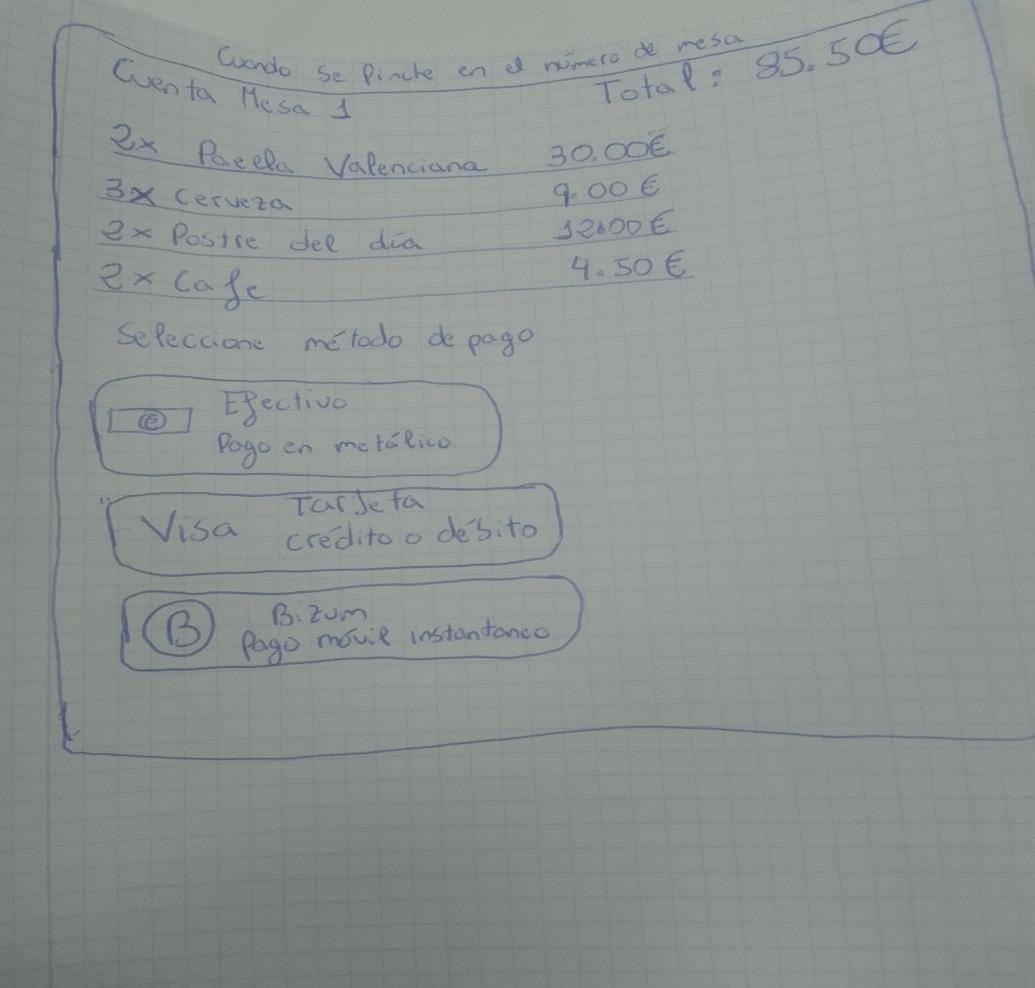 Cuando se Pinche en el número de mesa
Cuenta Mesa 1 Total: 85.50€
2x Paeella Valenciana 30.00€
3x Cerveza 9.00€
2x Postre del día 12.00€
2x Cafe 4.50€
Seleccione método de pago
€ Efectivo
Pago en metálico
Visa Tarjeta
crédito o débito
B Bizum
Pago móvil instantaneo